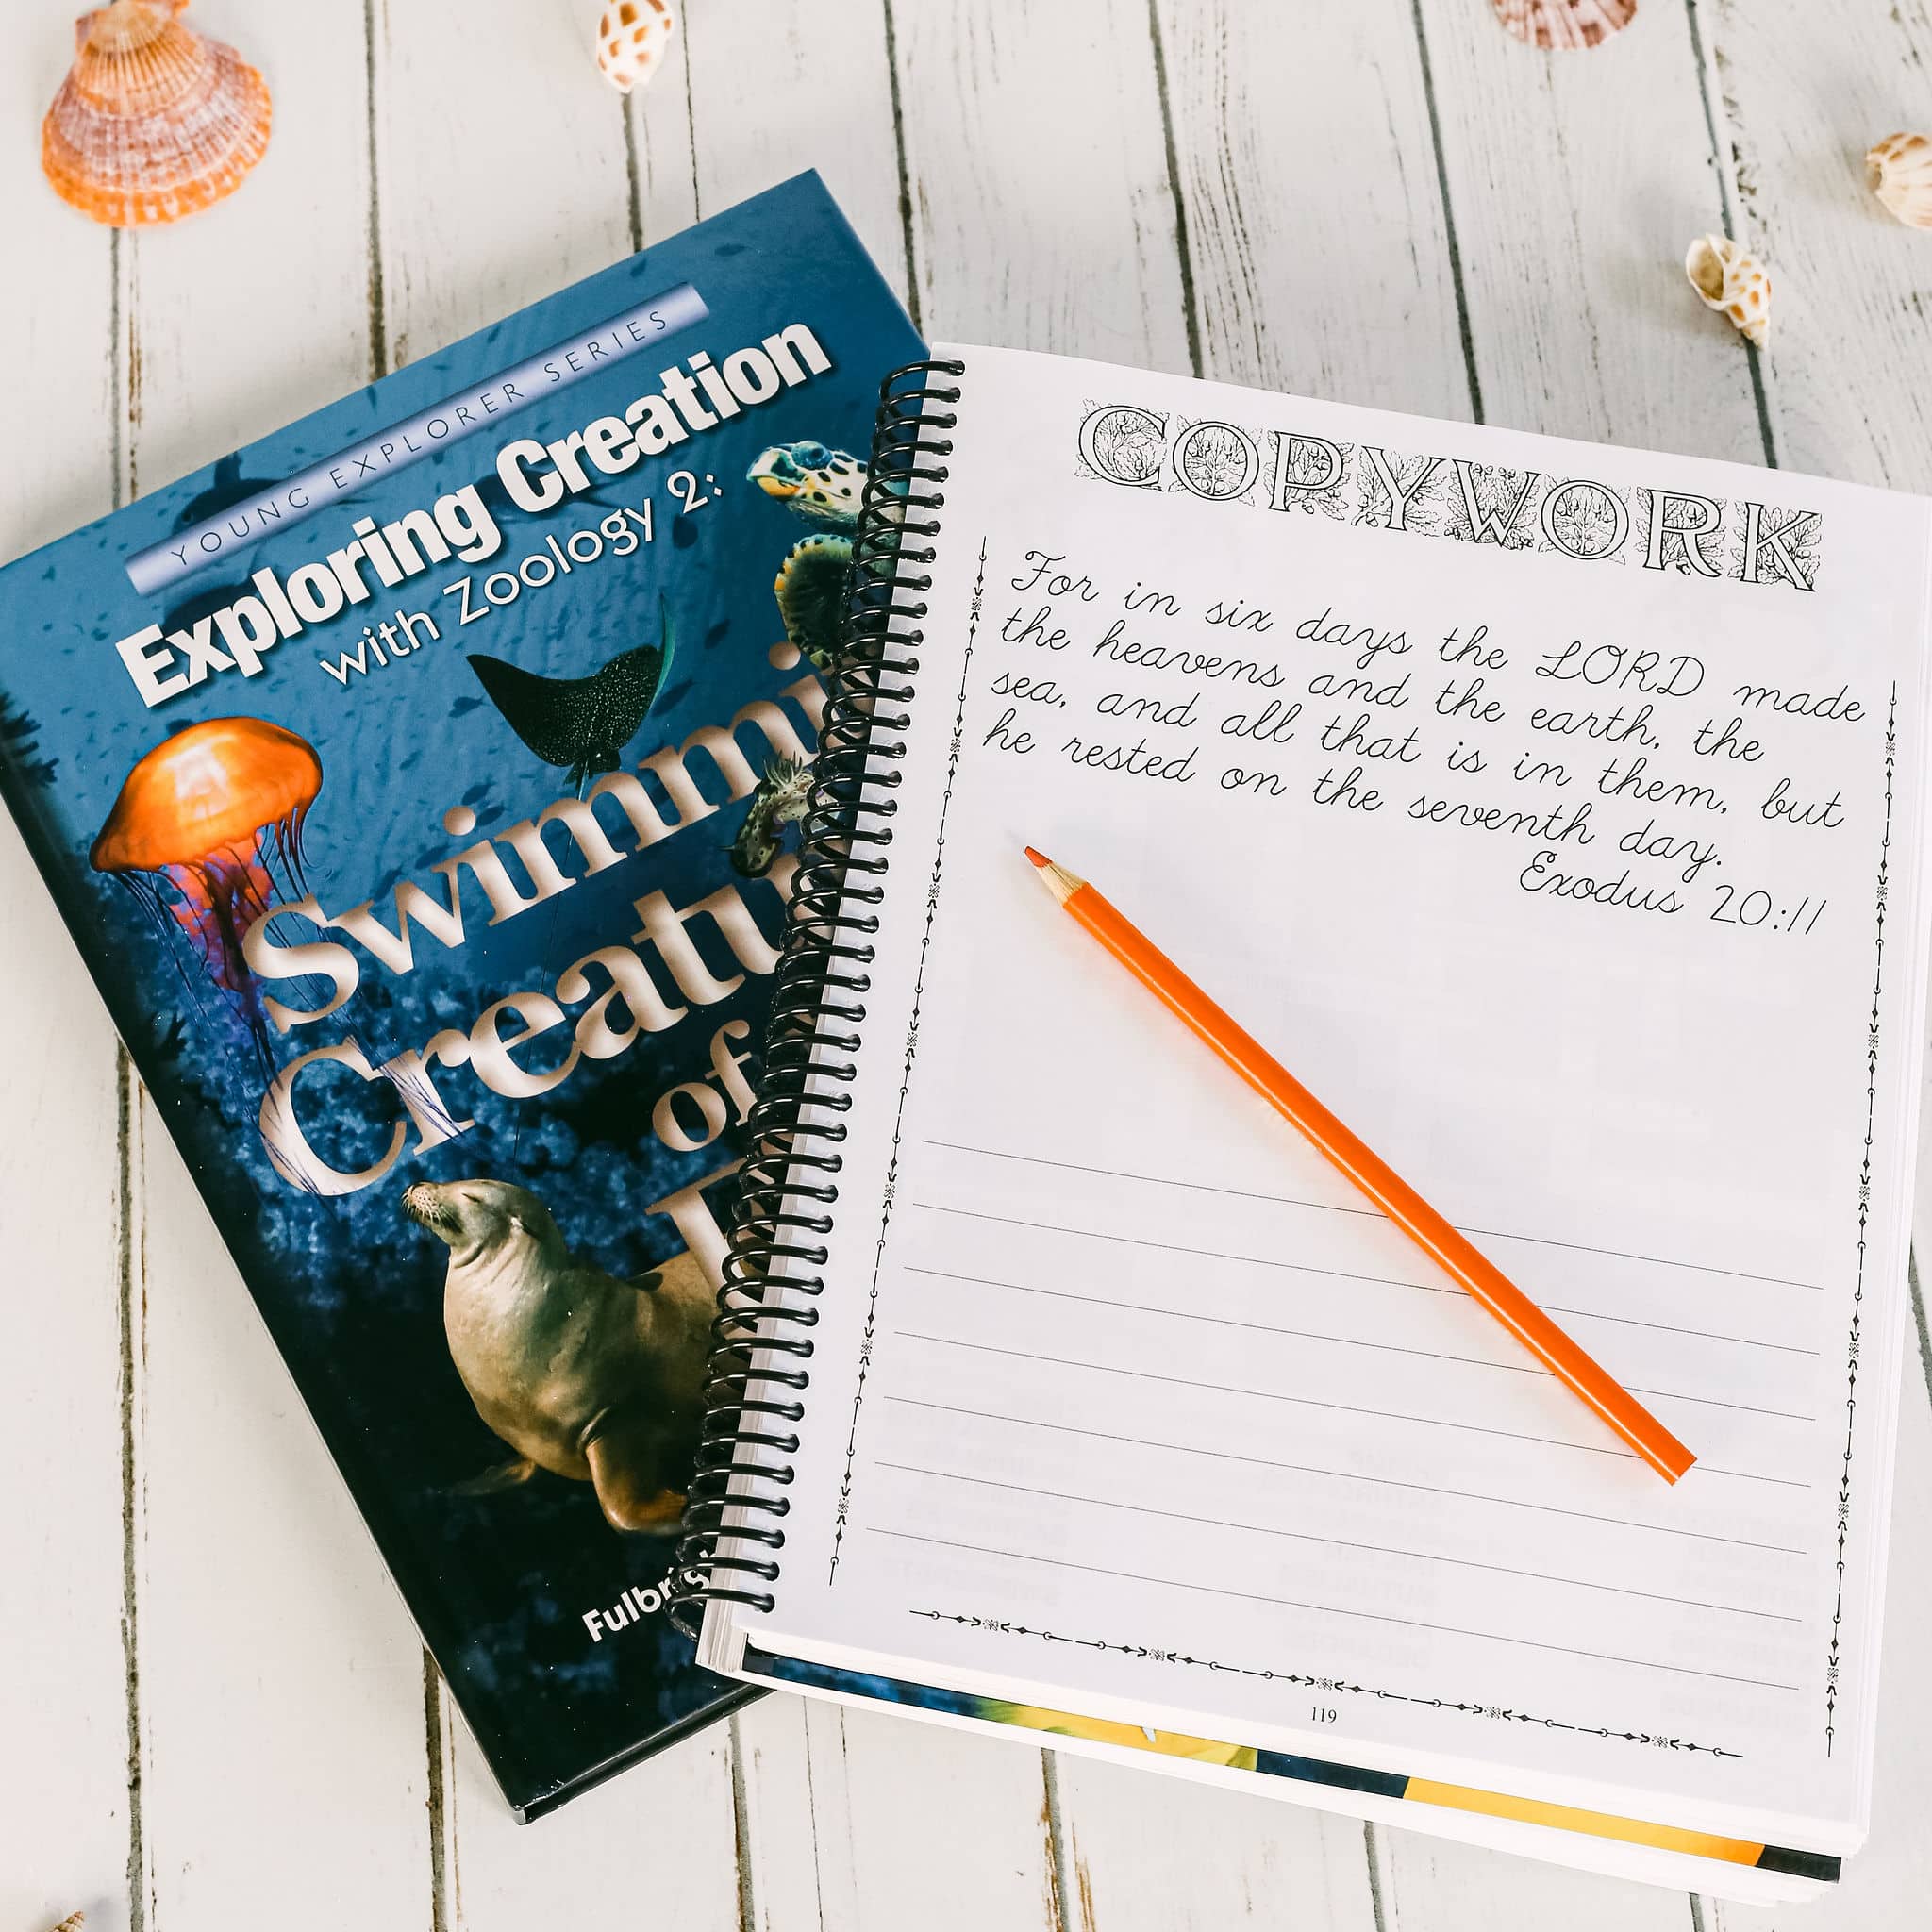 YOUNG EXPLORER SERIES
Exploring Creation
with Zoology 2:
of
COPYWORK
For in six days the LORD made
the heavens and the earth, the
sea, and all that is in them, but
he rested on the seventh day.
Exodus 20:11
119